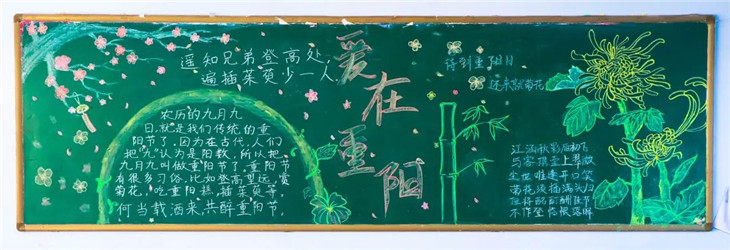 遥知兄弟登高处，
遍插茱萸少一人
农历的九月九
日，就是我们传统的重
阳节了，因为在古代，人们
把“九”认为是阳数，所以把
九月九叫做重阳节了，重阳节
有很多习俗，比如登高望远、赏
菊花、吃重阳糕、插茱萸等。
何当载酒来，共醉重阳节。
爱在重阳
待到重阳日
还来就菊花
江涵秋影雁初飞
与客携壶上翠微
尘世难逢开口笑
菊花须插满头归
但将酩酊酬佳节
不作登临恨落晖